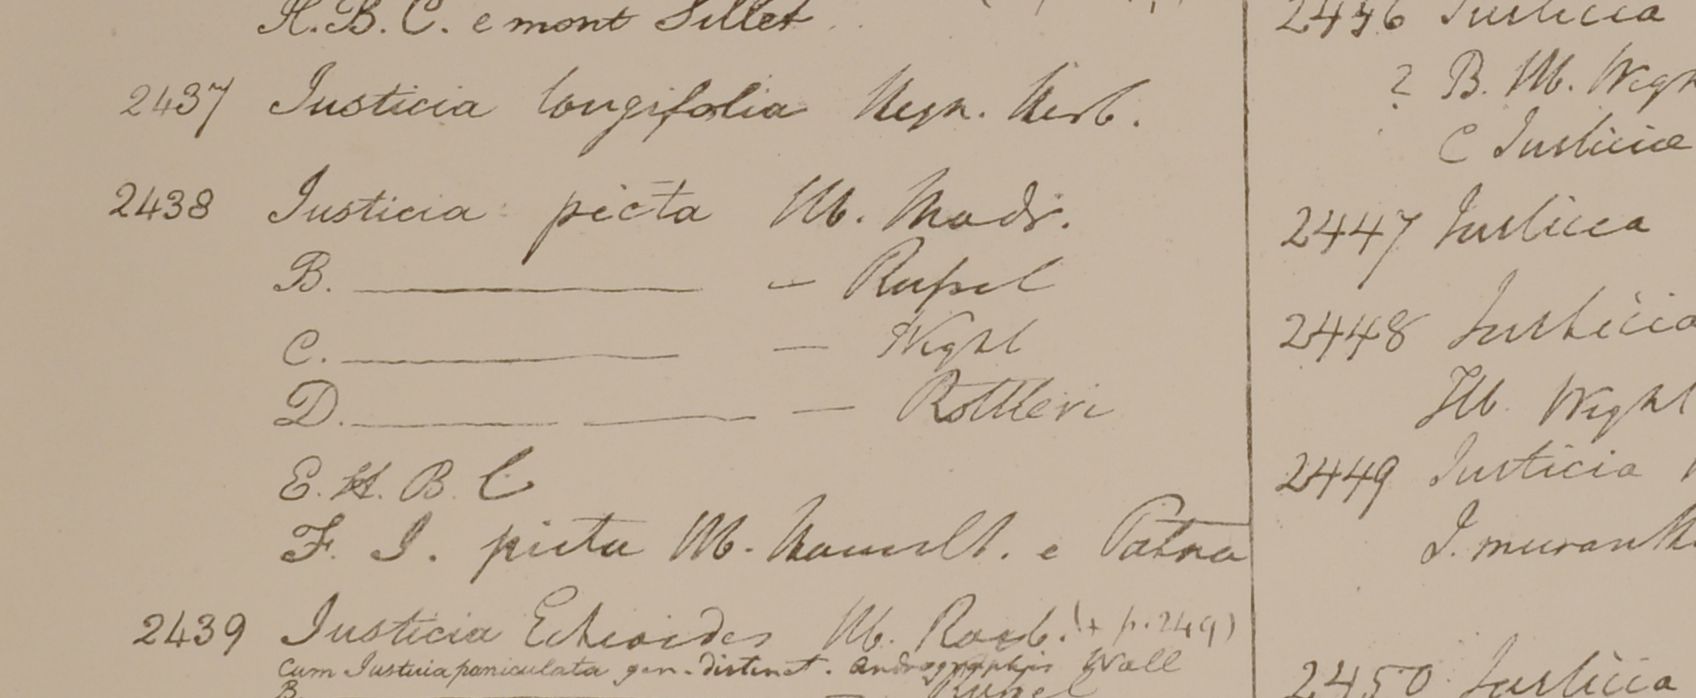 H.B.C. e mont Sillet
2437 Justicia longifolia Heyn. Herb.
2438 Justicia picta Hb. Madr.
B. — Russel
C. — Wight
D. — Rottleri
E. H. B. C
F. J. picta Hb. Hamilt. e Patna
2439 Justicia Echioides Hb. Roxb. (+ p. 249)
Cum Justicia paniculata gen. distinct. Andrographis Wall
B — Russel
2446 Justicia
? B. Hb. Wigh
C Justiciae
2447 Justicia
2448 Justicia
Hb. Wight
2449 Justicia
J.
2450 Justicia